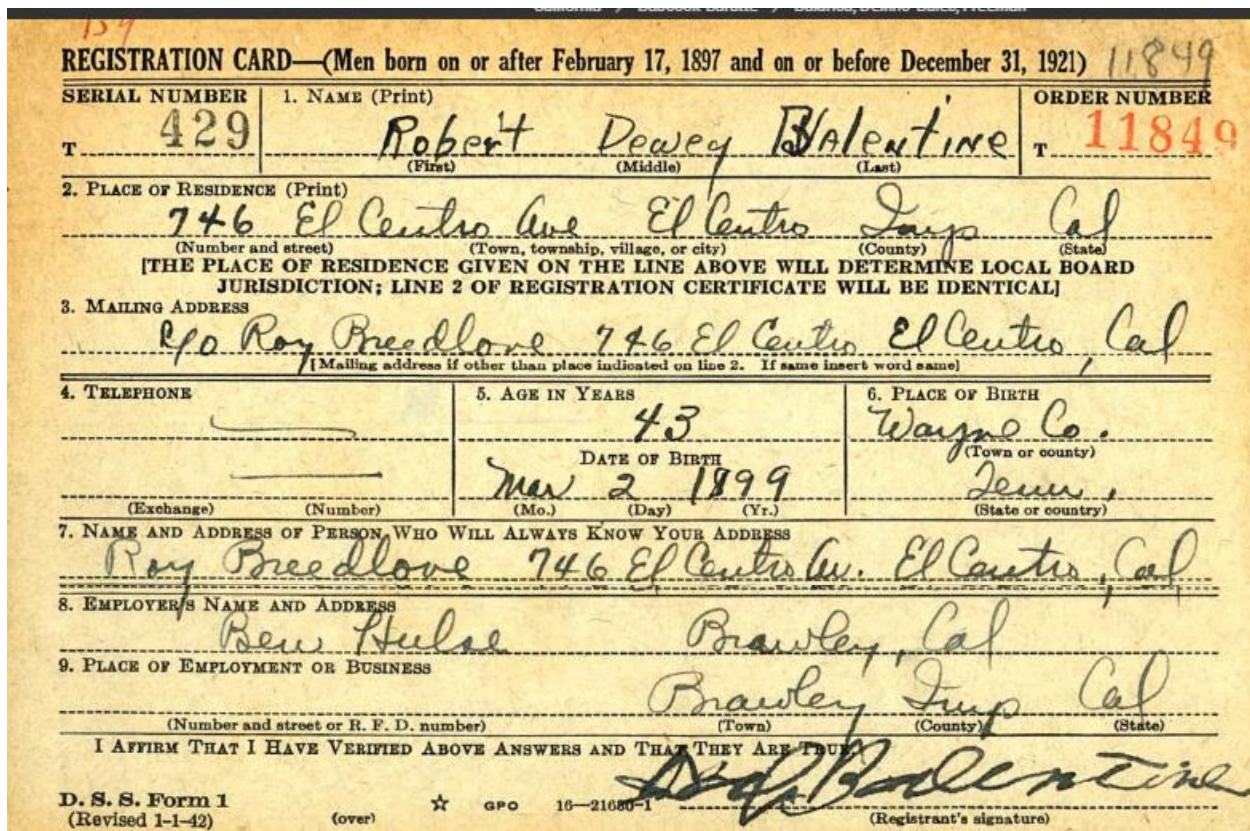 139
REGISTRATION CARD—(Men born on or after February 17, 1897 and on or before December 31, 1921) 11849
SERIAL NUMBER 1. NAME (Print) ORDER NUMBER
T 429 Robert Dewey Balentine T 11849
(First) (Middle) (Last)
2. PLACE OF RESIDENCE (Print)
746 El Centro Ave El Centro Imp Cal
(Number and street) (Town, township, village, or city) (County) (State)
[THE PLACE OF RESIDENCE GIVEN ON THE LINE ABOVE WILL DETERMINE LOCAL BOARD
JURISDICTION; LINE 2 OF REGISTRATION CERTIFICATE WILL BE IDENTICAL]
3. MAILING ADDRESS
c/o Roy Breedlove 746 El Centro El Centro, Cal
[Mailing address if other than place indicated on line 2. If same insert word same]
4. TELEPHONE 5. AGE IN YEARS 6. PLACE OF BIRTH
43 Wayne Co.
DATE OF BIRTH (Town or county)
Mar 2 1899 Tenn.
(Exchange) (Number) (Mo.) (Day) (Yr.) (State or country)
7. NAME AND ADDRESS OF PERSON WHO WILL ALWAYS KNOW YOUR ADDRESS
Roy Breedlove 746 El Centro Av. El Centro, Cal
8. EMPLOYER'S NAME AND ADDRESS
Ben Hulse Brawley, Cal
9. PLACE OF EMPLOYMENT OR BUSINESS
Brawley Imp Cal
(Number and street or R. F. D. number) (Town) (County) (State)
I AFFIRM THAT I HAVE VERIFIED ABOVE ANSWERS AND THAT THEY ARE TRUE.
Balentine
D. S. S. Form 1 ☆ GPO 16—21630-1
(Revised 1-1-42) (over) (Registrant's signature)